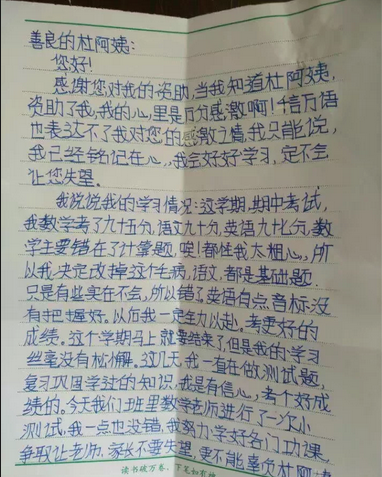 善良的杜阿姨:
您好!
感谢您对我的资助,当我知道杜阿姨,
资助了我,我的心,里是万分感激啊!千言万语
也表达不了我对您的感激之情,我只能说,
我已经铭记在心,我会好好学习,定不会
让您失望。
我说说我的学习情况:这学期,期中考试,
我数学考了九十五分,语文九十分,英语九十七分,数
学主要错在了计算题,唉!都怪我太粗心,所
以我决定改掉这个毛病,语文,都是基础题.
只是有些实在不会,所以错了。英语有点音标没
有把握好。以后我一定全力以赴。考更好的
成绩。这个学期马上就要结束了,但是我的学习
丝毫没有松懈。这几天我一直在做测试题,
复习巩固学过的知识,我是有信心,考个好成
绩的。今天我们班里数学老师进行了一次小
测试,我一点也没错,我努力学好各门功课,
争取让老师,家长不要失望,更不能辜负杜阿姨
读书破万卷,下笔如有神